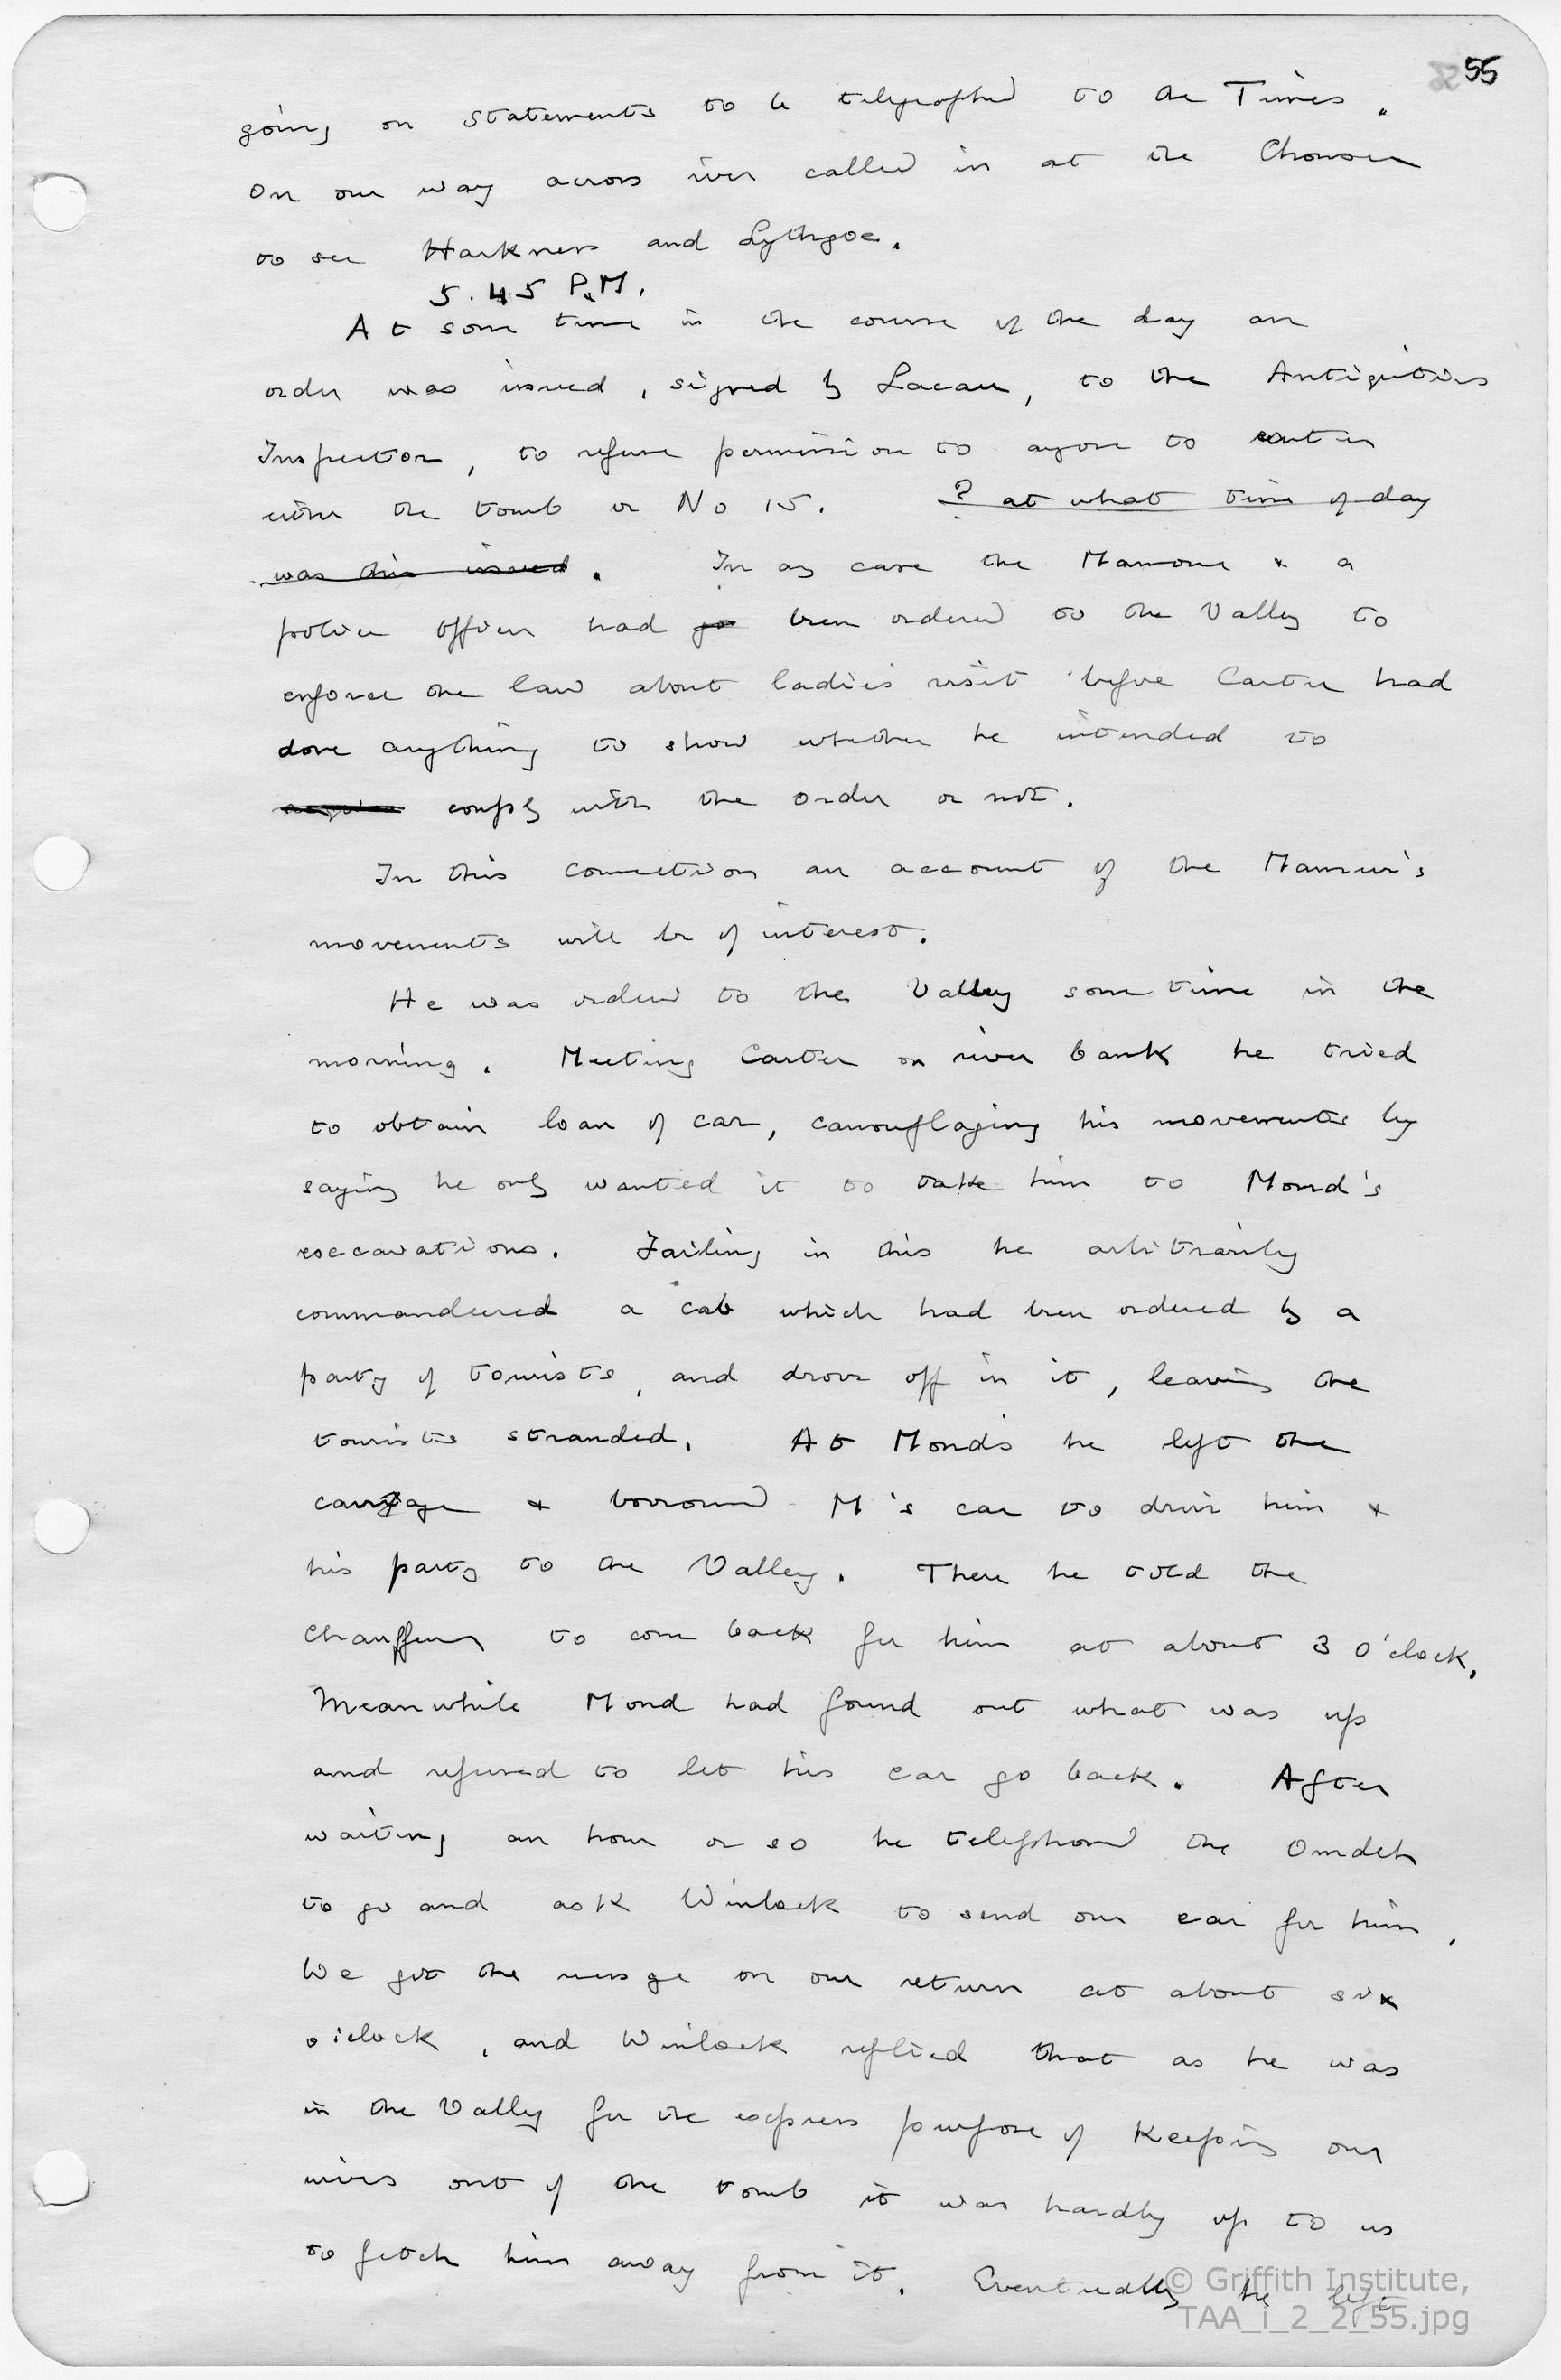 55
going on statements to be telegraphed to the Times.
On our way across river called in at the Chonsu
to see Harkness and Lythgoe.
5.45 P.M.
At some time in the course of the day an
order was issued, signed by Lacau, to the Antiquities
Inspector, to refuse permission to anyone to enter
either the tomb or No 15. ? at what time of day
was this issued. In any case the Mamour & a
police officer had go been ordered to the Valley to
enforce the law about ladies visit before Carter had
done anything to show whether he intended to
comply with the order or not.
In this connection an account of the Mamur's
movements will be of interest.
He was ordered to the Valley some time in the
morning. Meeting Carter on river bank he tried
to obtain loan of car, camouflaging his movements by
saying he only wanted it to take him to Mond's
excavations. Failing in this he arbitrarily
commandeered a cab which had been ordered by a
party of tourists, and drove off in it, leaving the
tourists stranded. At Mond's he left the
carriage & borrowed M's car to drive him &
his party to the Valley. There he told the
chauffeur to come back for him at about 3 o'clock.
Meanwhile Mond had found out what was up
and refused to let his car go back. After
waiting an hour or so he telephoned the Omdeh
to go and ask Winlock to send our car for him.
We got the message on our return at about six
o'clock, and Winlock replied that as he was
in the Valley for the express purpose of keeping our
wives out of the tomb it was hardly up to us
to fetch him away from it. Eventually he left
© Griffith Institute,
TAA_i_2_2_55.jpg